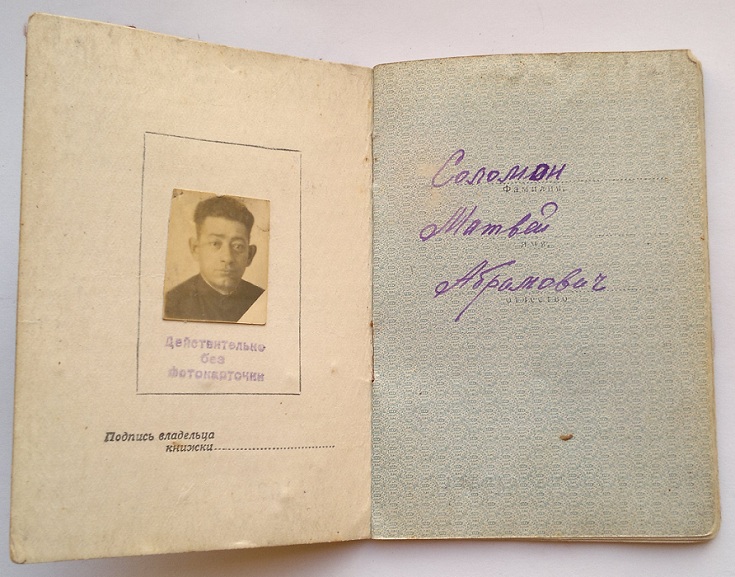 Действительно
без
фотокарточки
Подпись владельца
книжки
Соломон
Фамилия.
Матвей
имя.
Абрамович
отчество